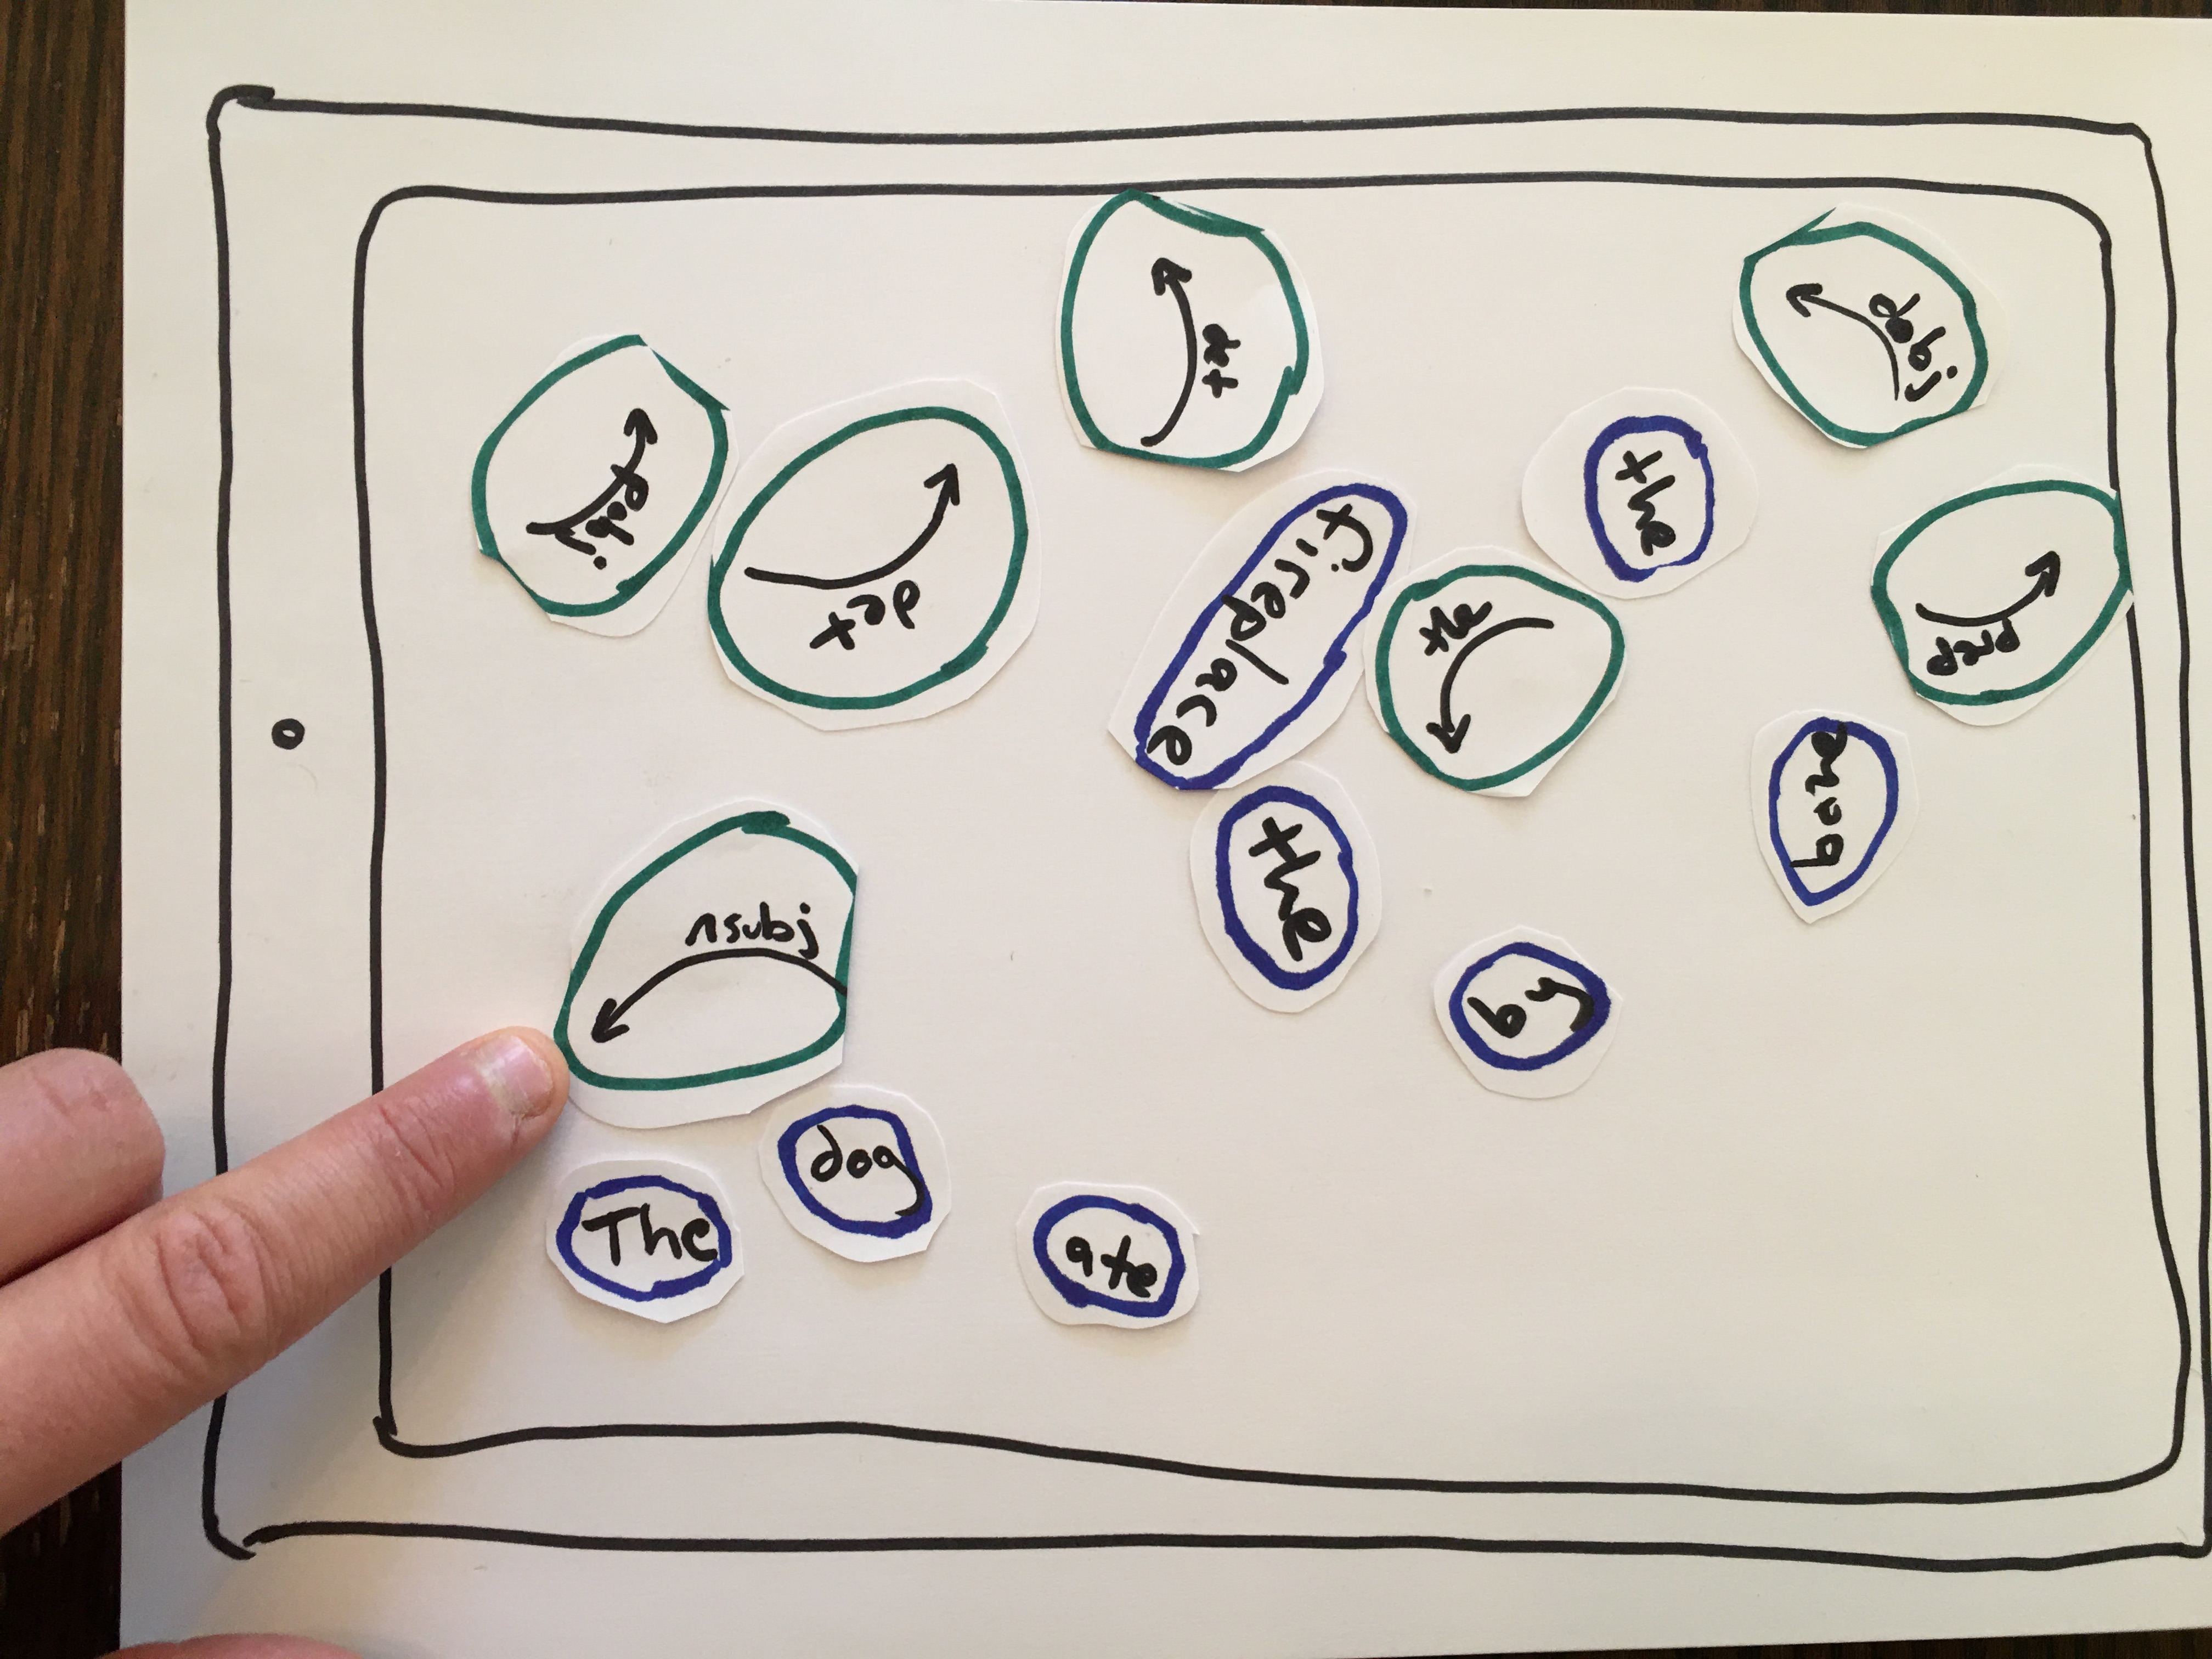 det
dobj
pobj
det
the
fireplace
the
prep
bone
the
nsubj
by
dog
The
ate